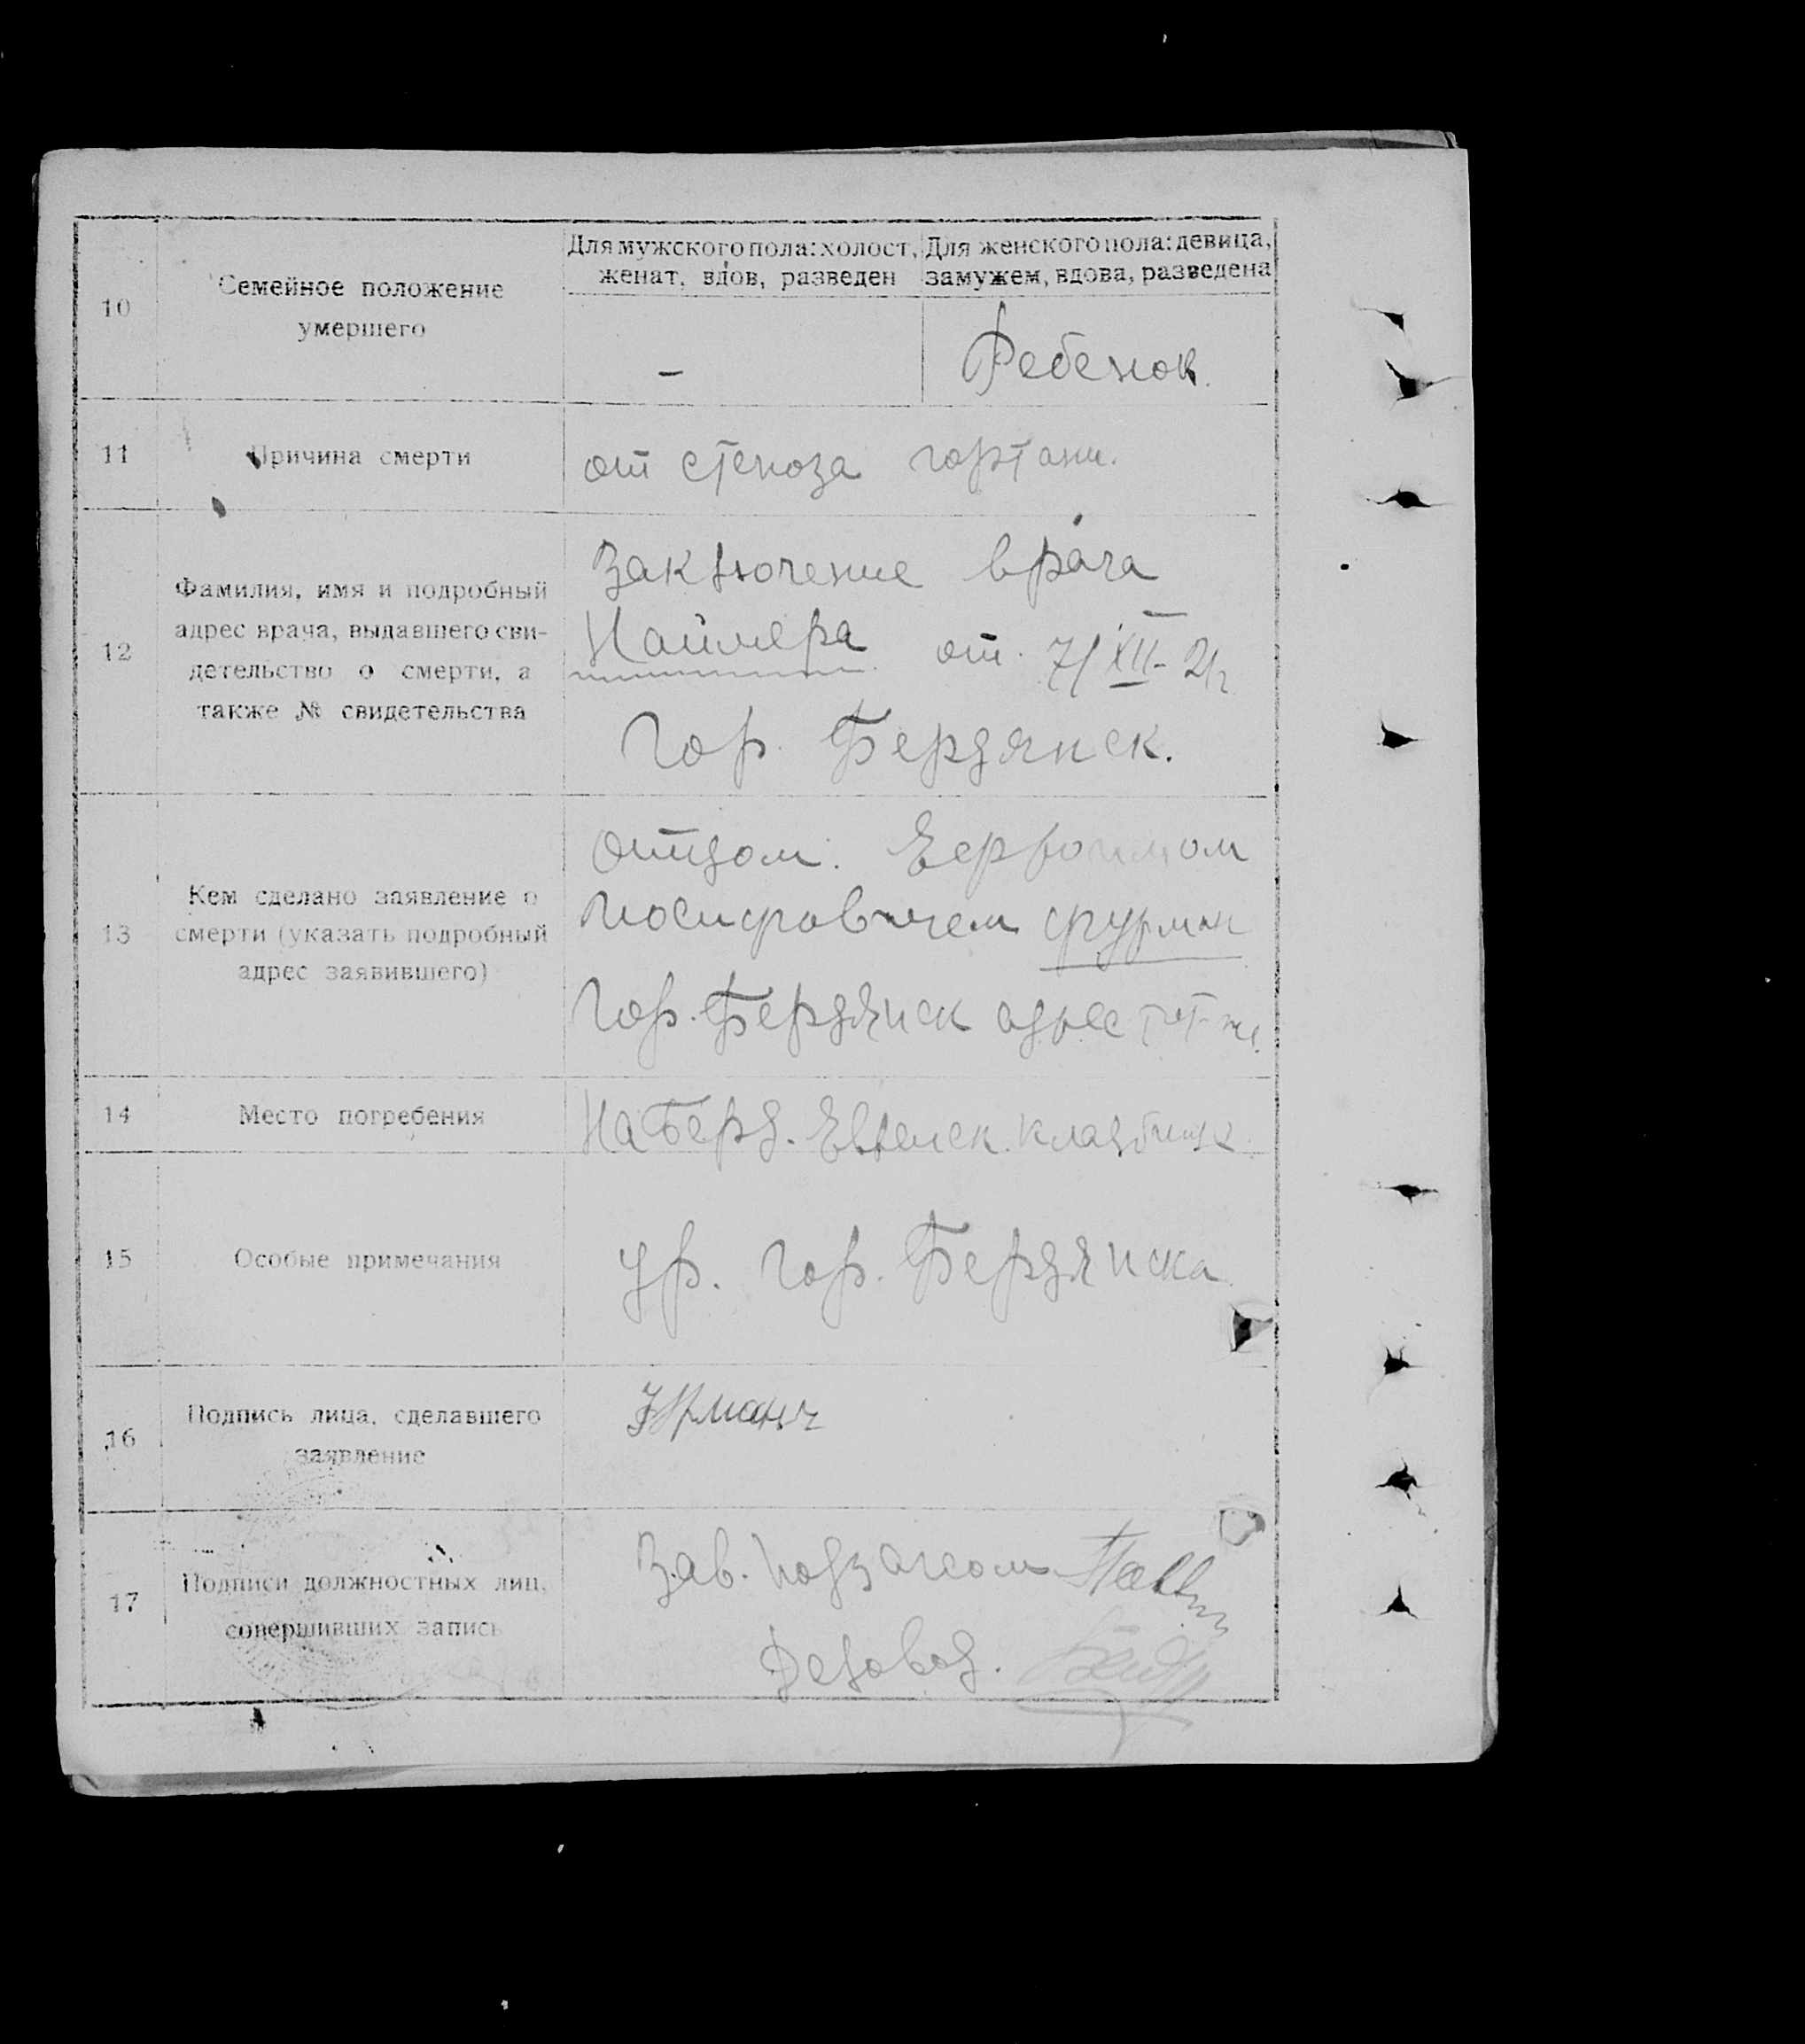 10
Семейное положение
умершего
Для мужского пола: холост,
женат, вдов, разведен
Для женского пола: девица,
замужем, вдова, разведена
–
Ребенок.
11
Причина смерти
от стеноза гортани.
12
Фамилия, имя и подробный
адрес врача, выдавшего сви-
детельство о смерти, а
также № свидетельства
Заключение врача
Наймера от 7/XII-21г
Гор. Бердянск.
13
Кем сделано заявление о
смерти (указать подробный
адрес заявившего)
отцом:
Иосифовичем Фурман
Гор. Бердянск адрес тот-же.
14
Место погребения
На Берд. Еврейск. кладбище.
15
Особые примечания
ур. гор. Бердянска
16
Подпись лица, сделавшего
заявление
17
Подписи должностных лиц,
совершивших запись
Зав. подзагсом
Деловод.